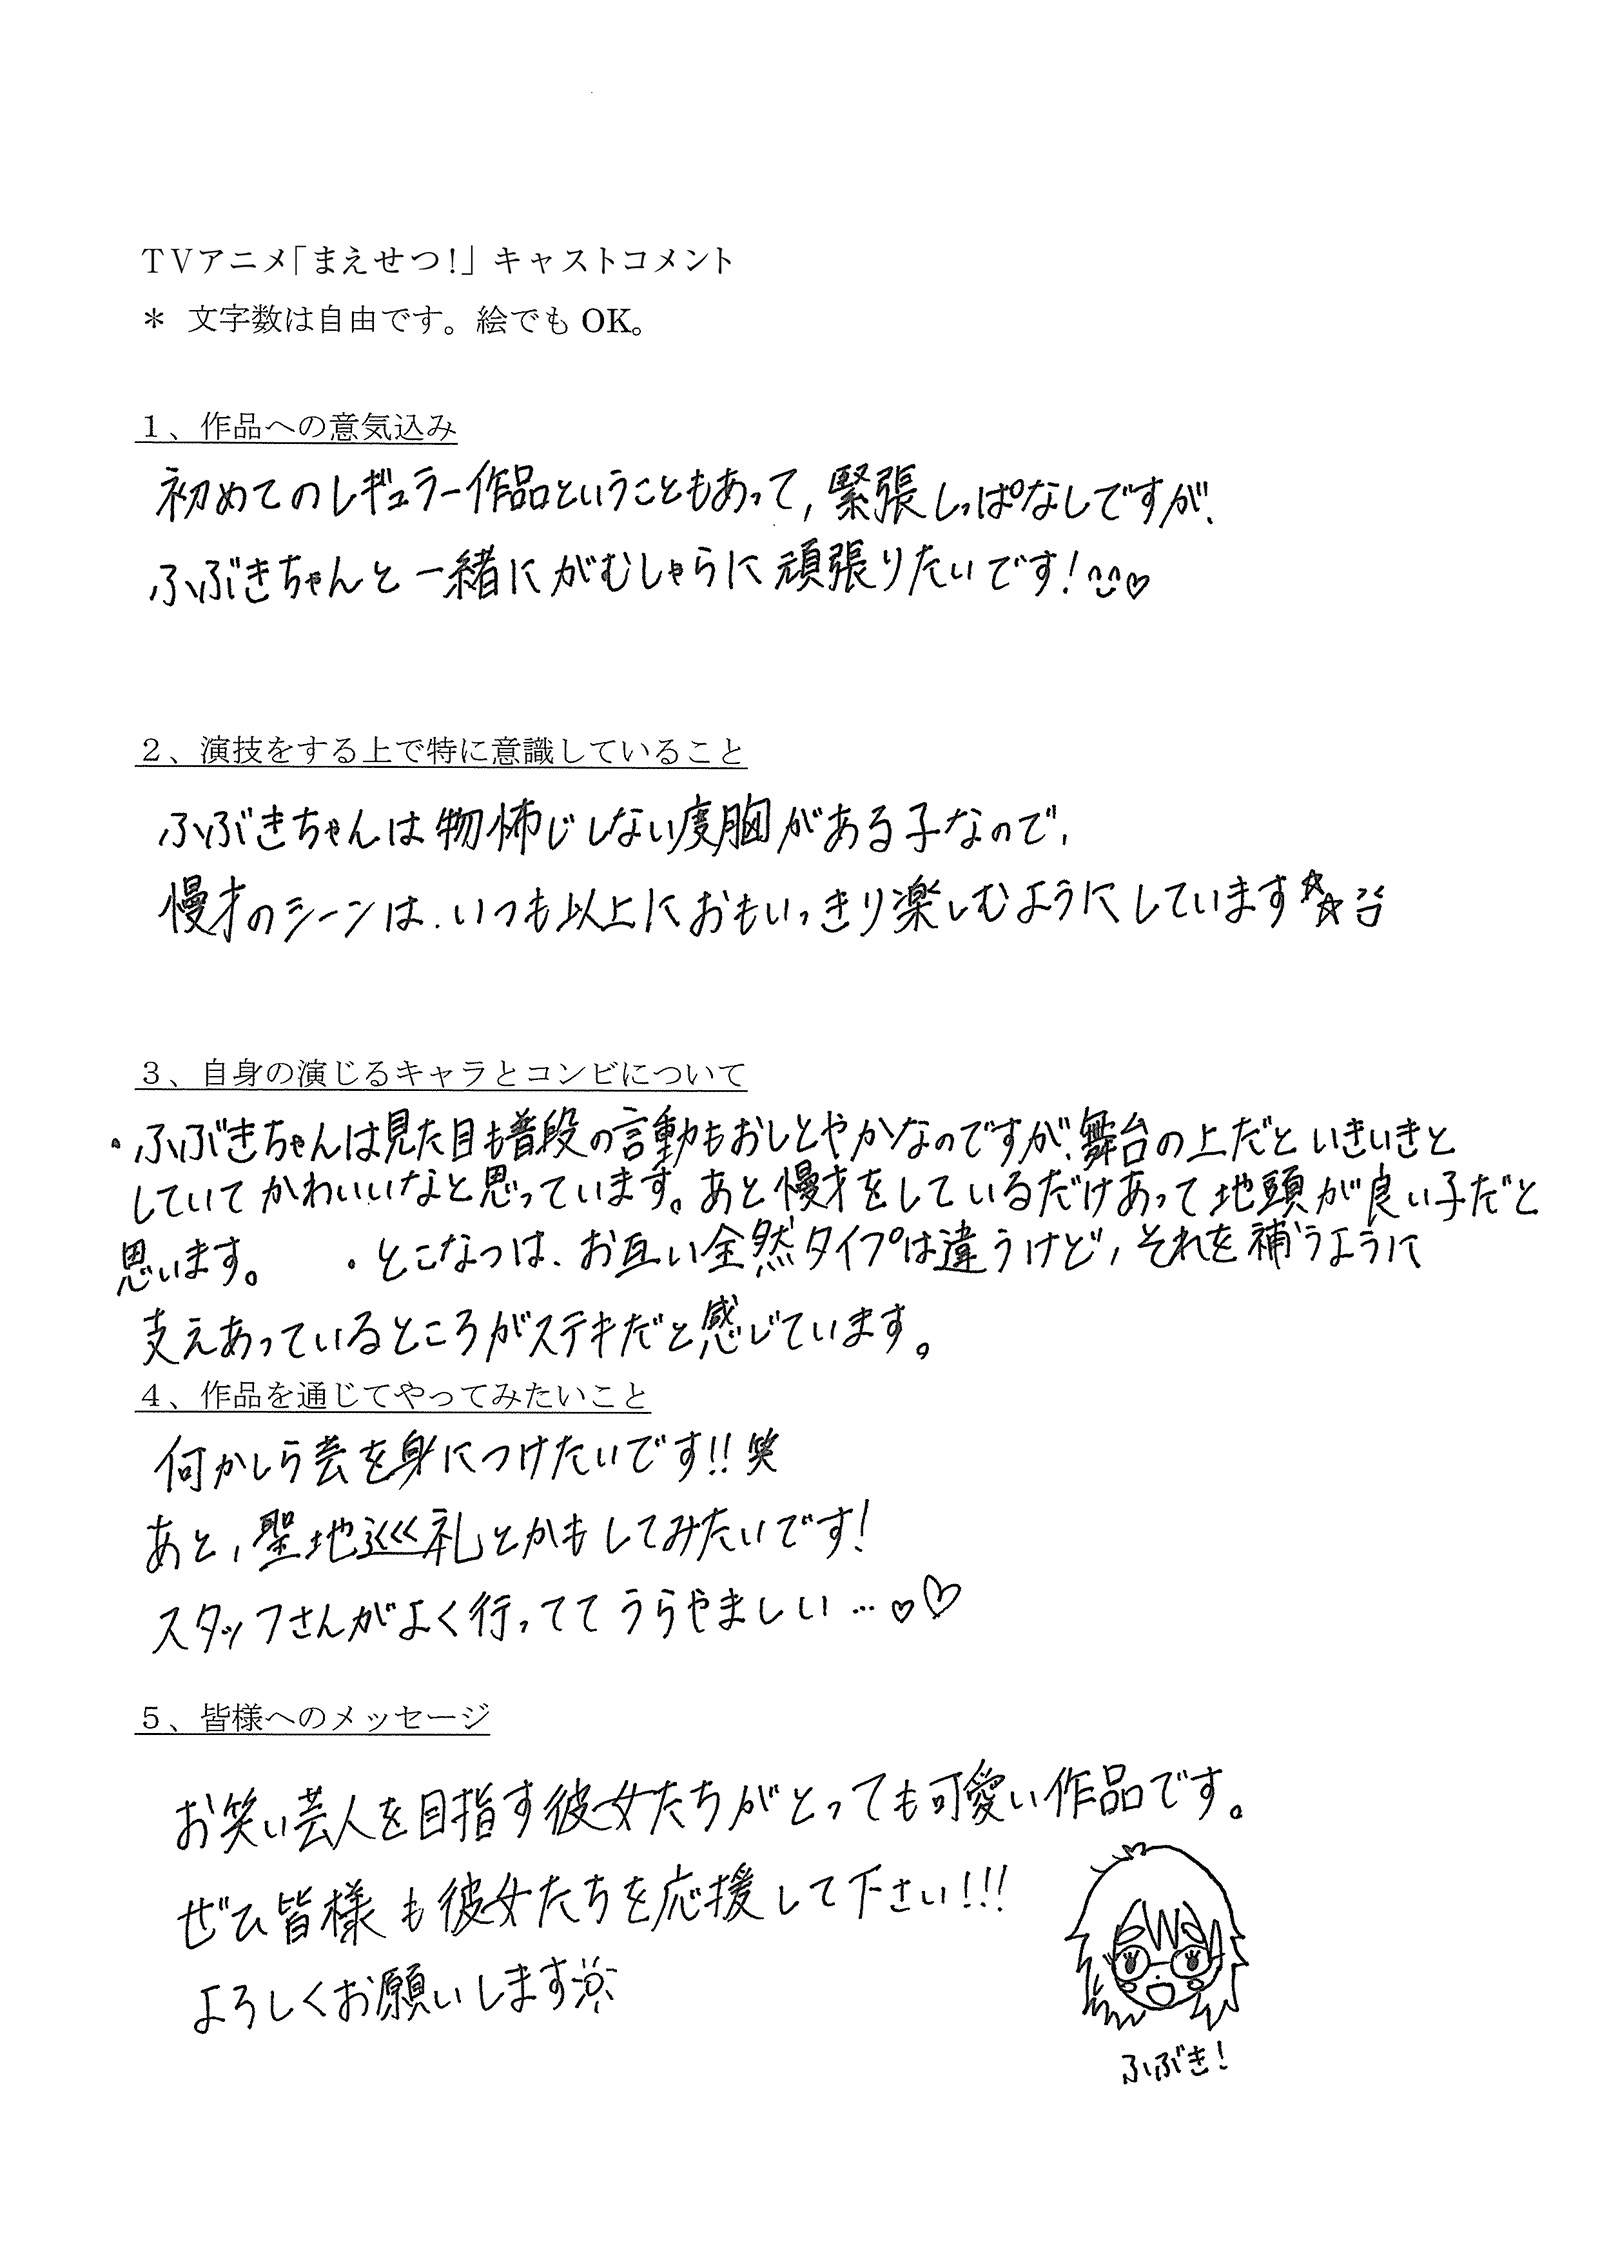 TVアニメ「まえせつ!」キャストコメント
＊ 文字数は自由です。絵でも OK。
1、作品への意気込み
初めてのレギュラー作品ということもあって、緊張しっぱなしですが、
ふぶきちゃんと一緒にがむしゃらに頑張りたいです!
2、演技をする上で特に意識していること
ふぶきちゃんは物怖じしない度胸がある子なので、
慢才のシーンは、いつも以上におもいっきり楽しむようにしています
3、自身の演じるキャラとコンビについて
・ふぶきちゃんは見た目も普段の言動もおしとやかなのですが、舞台の上だといきいきと
していてかわいいなと思っています。あと慢才をしているだけあって地頭が良い子だと
思います。 ・とこなつは、お互い全然タイプは違うけど、それを補うように
支えあっているところがステキだと感じています。
4、作品を通じてやってみたいこと
何かしら芸を身につけたいです!!笑
あと、聖地巡礼とかもしてみたいです!
スタッフさんがよく行っててうらやましい…♡♡
5、皆様へのメッセージ
お笑い芸人を目指す彼女たちがとっても可愛い作品です。
ぜひ皆様も彼女たちを応援して下さい!!!
よろしくお願いします
ふぶき!